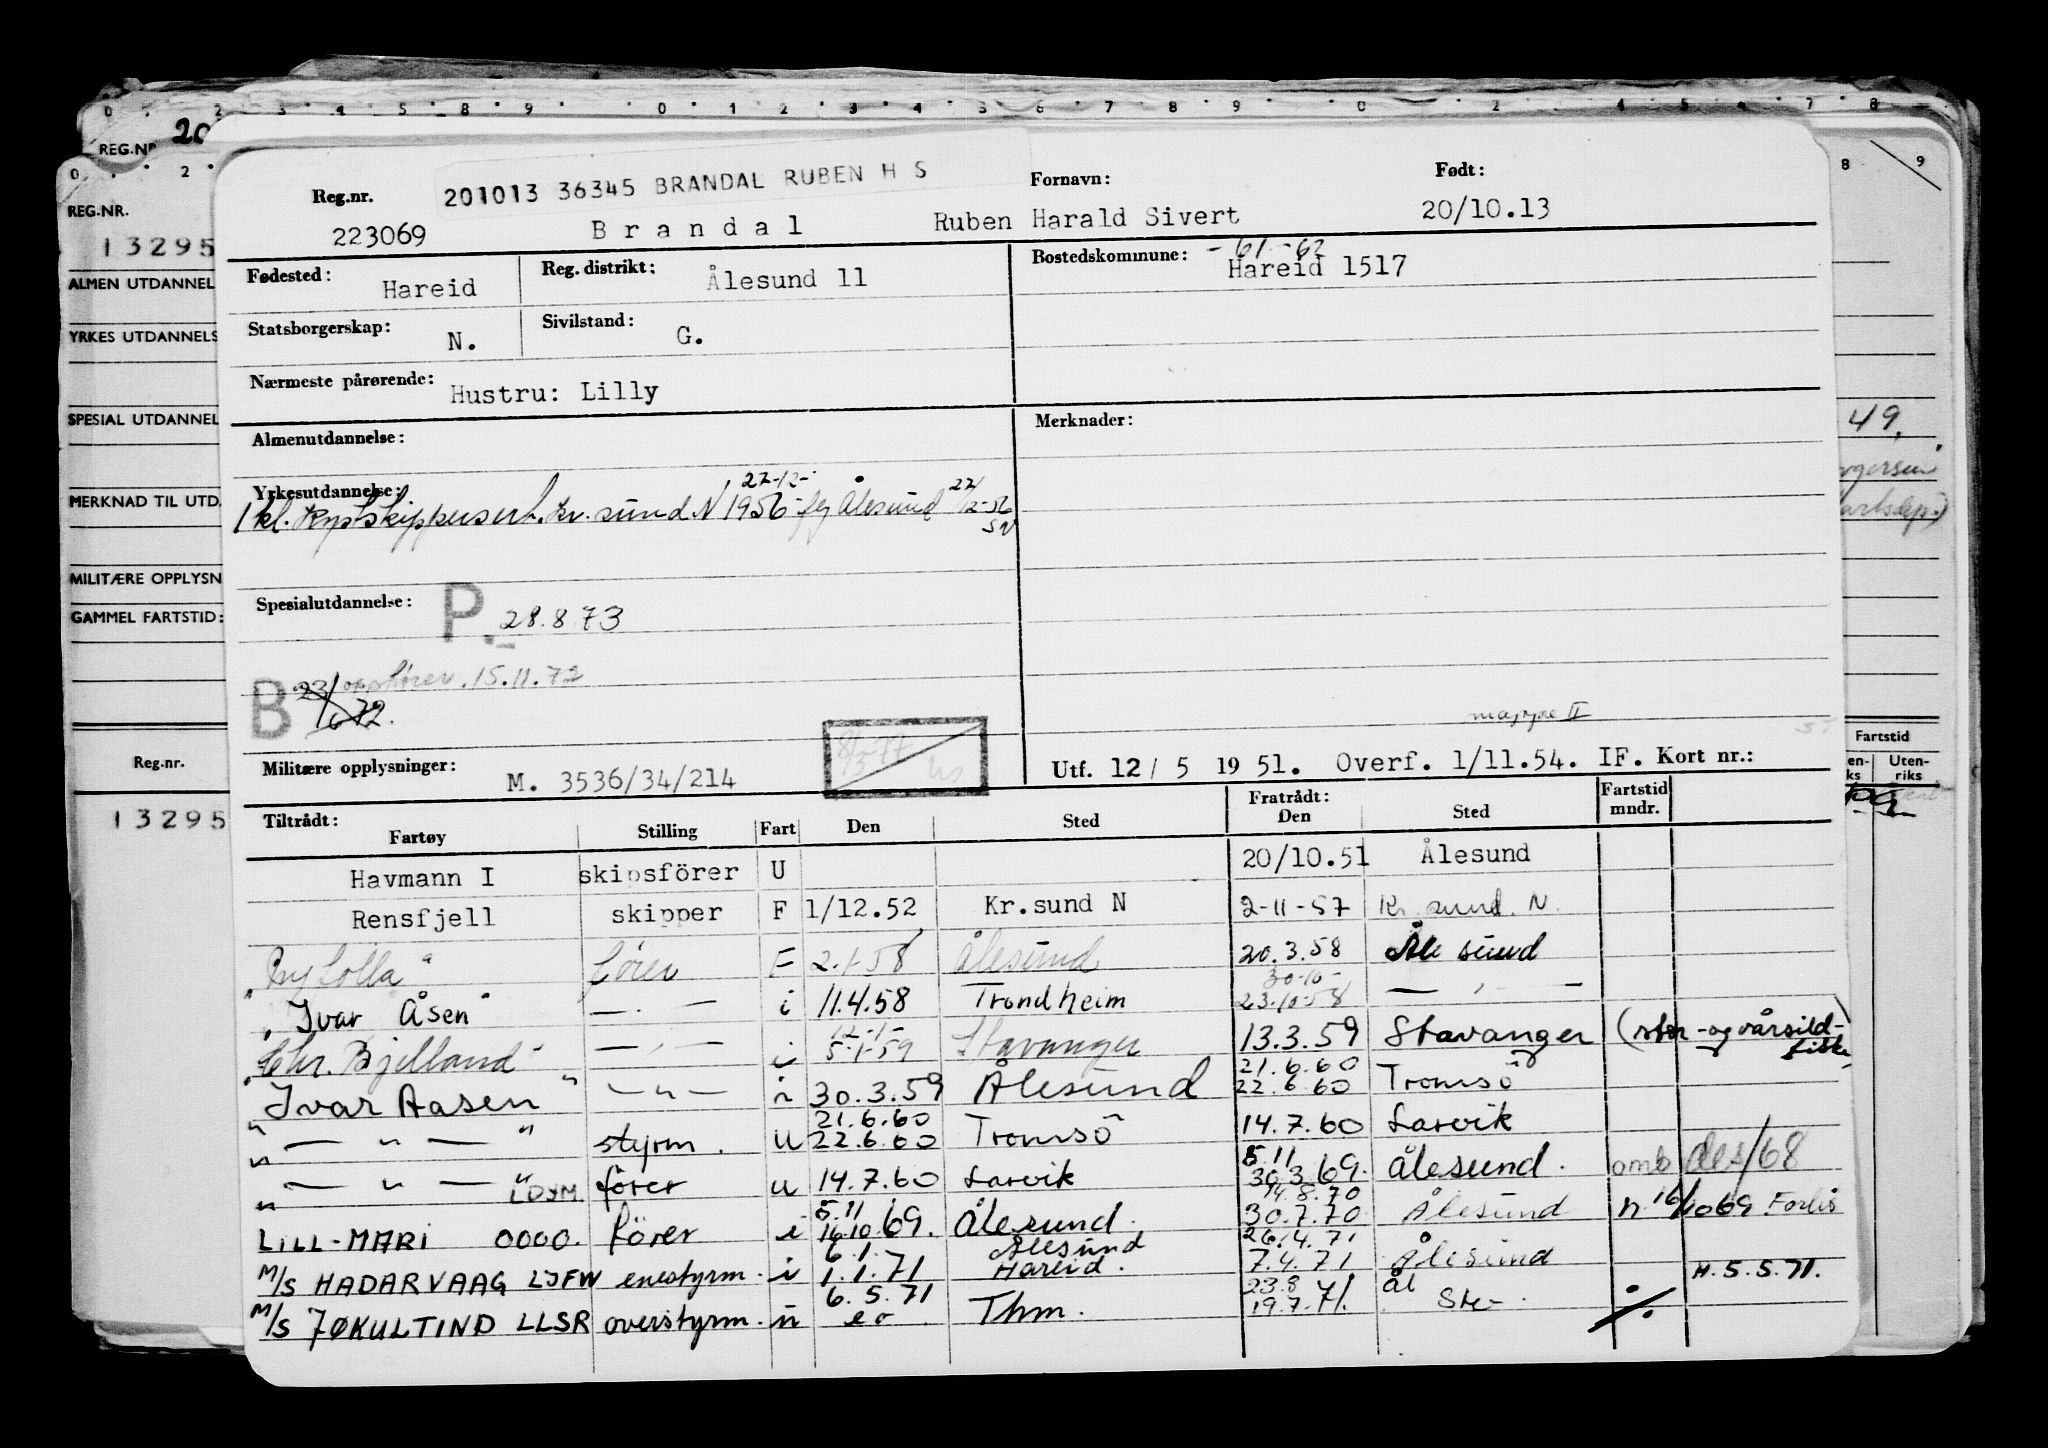 0 2 3 4 5 8 9 0 1 2 3 4 5 6 7 8 9 0 2 4 5 6 7 8
REG.NR 20
0 2 8 9
REG.NR.
13295
ALMEN UTDANNEL
YRKES UTDANNELS
SPESIAL UTDANNEL
MERKNAD TIL UTD.
MILITÆRE OPPLYSN
GAMMEL FARTSTID:
Reg.nr.
13295
49.
Fartstid
en-ks Uten-riks
Reg.nr. 201013 36345 BRANDAL RUBEN H S Fornavn: Født:
223069 Brandal Ruben Harald Sivert 20/10.13
Fødested: Hareid Reg. distrikt: Ålesund 11 Bostedskommune: -61-62 Hareid 1517
Statsborgerskap: N. Sivilstand: G.
Nærmeste pårørende: Hustru: Lilly
Almenutdannelse: Merknader:
Yrkesutdannelse: 22-12-
1 kl. kystskippersert. Kr.sund N 1956 Ålesund 22/12-56
Spesialutdannelse: P. 28.8 73
B 23/6 72. opphører 15.11.72
mappe II
Militære opplysninger: M. 3536/34/214 Utf. 12/5 19 51. Overf. 1/11.54. IF. Kort nr.:
Tiltrådt: Fratrådt: Fartstid mndr.
Fartøy Stilling Fart Den Sted Den Sted
Havmann I skipsförer U 20/10.51 Ålesund
Rensfjell skipper F 1/12.52 Kr.sund N 2-11-57 Kr.sund. N.
fører F 2.1-58 Ålesund 20.3.58 Ålesund
30-10-
"Ivar Åsen" — " — i 11.4.58 Trondheim 23.10-58 — " —
12-1-
"Chr. Bjelland" — " — i 5-1-59 Stavanger 13.3.59 Stavanger (stor-og vårsild-fiske)
21.6.60
"Ivar Aasen" — " — i 30.3.59 Ålesund 22.6.60 Tromsö
21.6.60
" — " — " styrm. U 22.6.60 Tromsö 14.7.60 Larvik
5.11
" — " — " LDYM fører U 14.7.60 Larvik 30.3.69. Ålesund. omb des/68
5.11 14.8.70
LILL-MARI OOOO. förer i 16.10.69. Ålesund. 30.7.70 Ålesund n. 16/10 69 Forlis
6.1. Ålesund 26.4.71
M/S HADARVAAG LJFW enestyrm. i 1.1.71 Hareid. 7.4.71 Ålesund H. 5.5.71.
6.5.71 23.8 Ål
M/S JØKULTIND LLSR overstyrm. u Thm. 19.7.71.